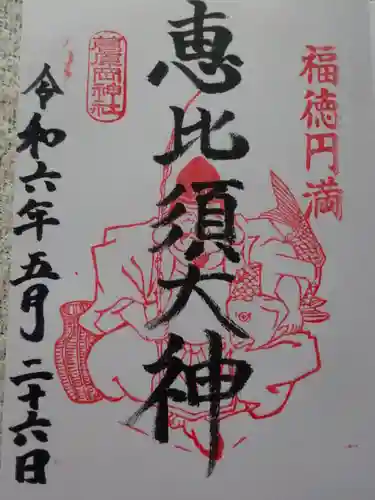 福徳円満
恵比須大神
菅原岡神社
令和六年五月二十六日